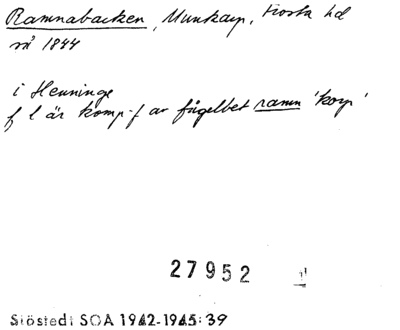 Ramnabacken, Munkarp, Frosta hd
så 1844
i Henninge
f l är komp-f av fågelbet ramn 'korp'
27952
Sjöstedt SOA 1942-1945:39